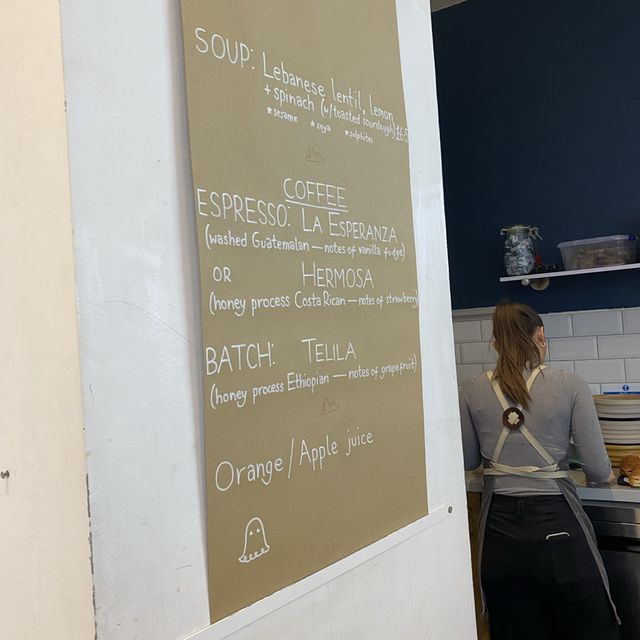 SOUP: Lebanese lentil, lemon
+ spinach (w/toasted sourdough)
*sesame *soya *sulphites
COFFEE
ESPRESSO: LA ESPERANZA
(washed Guatemalan — notes of vanilla fudge)
OR HERMOSA
(honey process Costa Rican — notes of strawberry)
BATCH: TELILA
(honey process Ethiopian — notes of grapefruit)
Orange/Apple juice